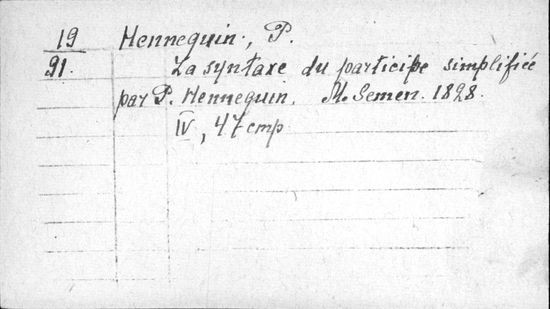 19 Hennequin, P.
91. La syntaxe du participe simplifiée
par P. Hennequin. M. Semen. 1828.
IV, 47 стр